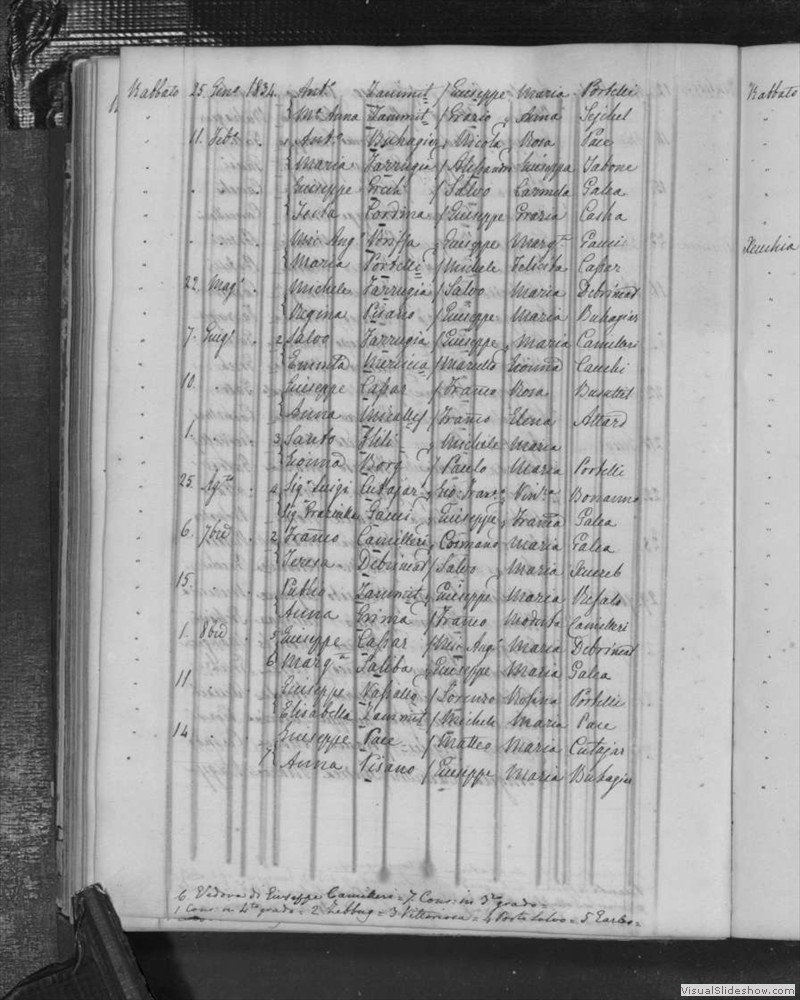 Rabbato 25. Genº 1834. Antº Zammit / Giuseppe Maria Portelli
Mª Anna Zammit / Grazio, Anna Sejchel
11. Febº Antº Buhagiar, Nicola Rosa Pace
Maria Farrugia / Giuseppa Tabone
Giuseppe / Salvo Carmela Galea
Testa Cordina / Giuseppe Grazia Casha
Mic Angº Briffa, Giuseppe Margª Gauci
Maria Portelli / Michele Felicita Caſsar
22. Magº Michele Farrugia / Salvo Maria Debrincat
Regina Pisano / Giuseppe Maria Buhagiar
7. Giugº 2 Salvo Farrugia / Giuseppe, Maria Camilleri
/ Marcello Cauchi
10. Giuseppe Caſsar / Franco Rosa Busuttil
Anna Micallef / Franco Elena Attard
1. 3 Santo , Michele Maria
Borg / Paulo Maria Portelli
25. Agº 4 Sigr Luigi Cutajar, Gio Franº, Vinza Bonanno
Gauci, Giuseppe, Franca Galea
6. 7bre 2 Franco Camilleri, Cosmano Maria Galea
Teresa Debrincat / Salvo, Maria Xuereb
15. Publio Zammit, Giuseppe Maria Vefalo
Anna Grima / Franco Modesta Camilleri
1. 8bre 5 Giuseppe Caſsar / Mic Angº Maria Debrincat
6 Margª Saliba, Giuseppe Maria Galea
11 Giuseppe Vaſsallo / Lorenzo Rosina Portelli
Elisabetta Zammit / Michele Maria Pace
14. Giuseppe Pace / Matteo Maria Cutajar
7 Anna Pisano / Giuseppe Maria Buhagiar
6 Vedova di Giuseppe Camilleri = 7 Cons: in 3º grado =
1 Cons: in 4º grado = 2 Zebbug = 3 Vittoriosa = 4 Porto Salvo = 5 =
Rabbato
Xeuchia
VisualSlideshow.com